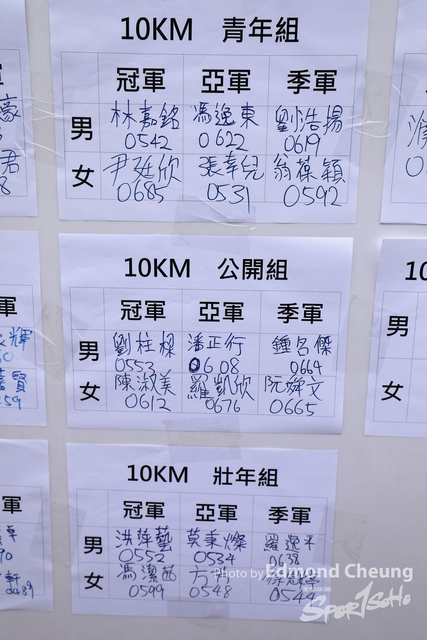 10KM 青年組
冠軍 亞軍 季軍
男 林嘉銘 馮逸東 劉浩揚
0542 0622 0619
女 尹廷欣 張幸兒 翁葆穎
0685 0531 0592
10KM 公開組
冠軍 亞軍 季軍
男 劉柱樑 潘正行 鍾呂傑
0553 0608 0664
女 陳淑美 羅凱欣 阮舜文
0612 0676 0665
10KM 壯年組
冠軍 亞軍 季軍
男 洪萍藝 莫秉燦 羅逸平
0552 0534 0638
女 馮潔茵
0599 0548 054
Photo by Edmond Cheung
SportSoHo
軍
君
軍
輝
賢
59
軍
卓
90
軒
10
男
女